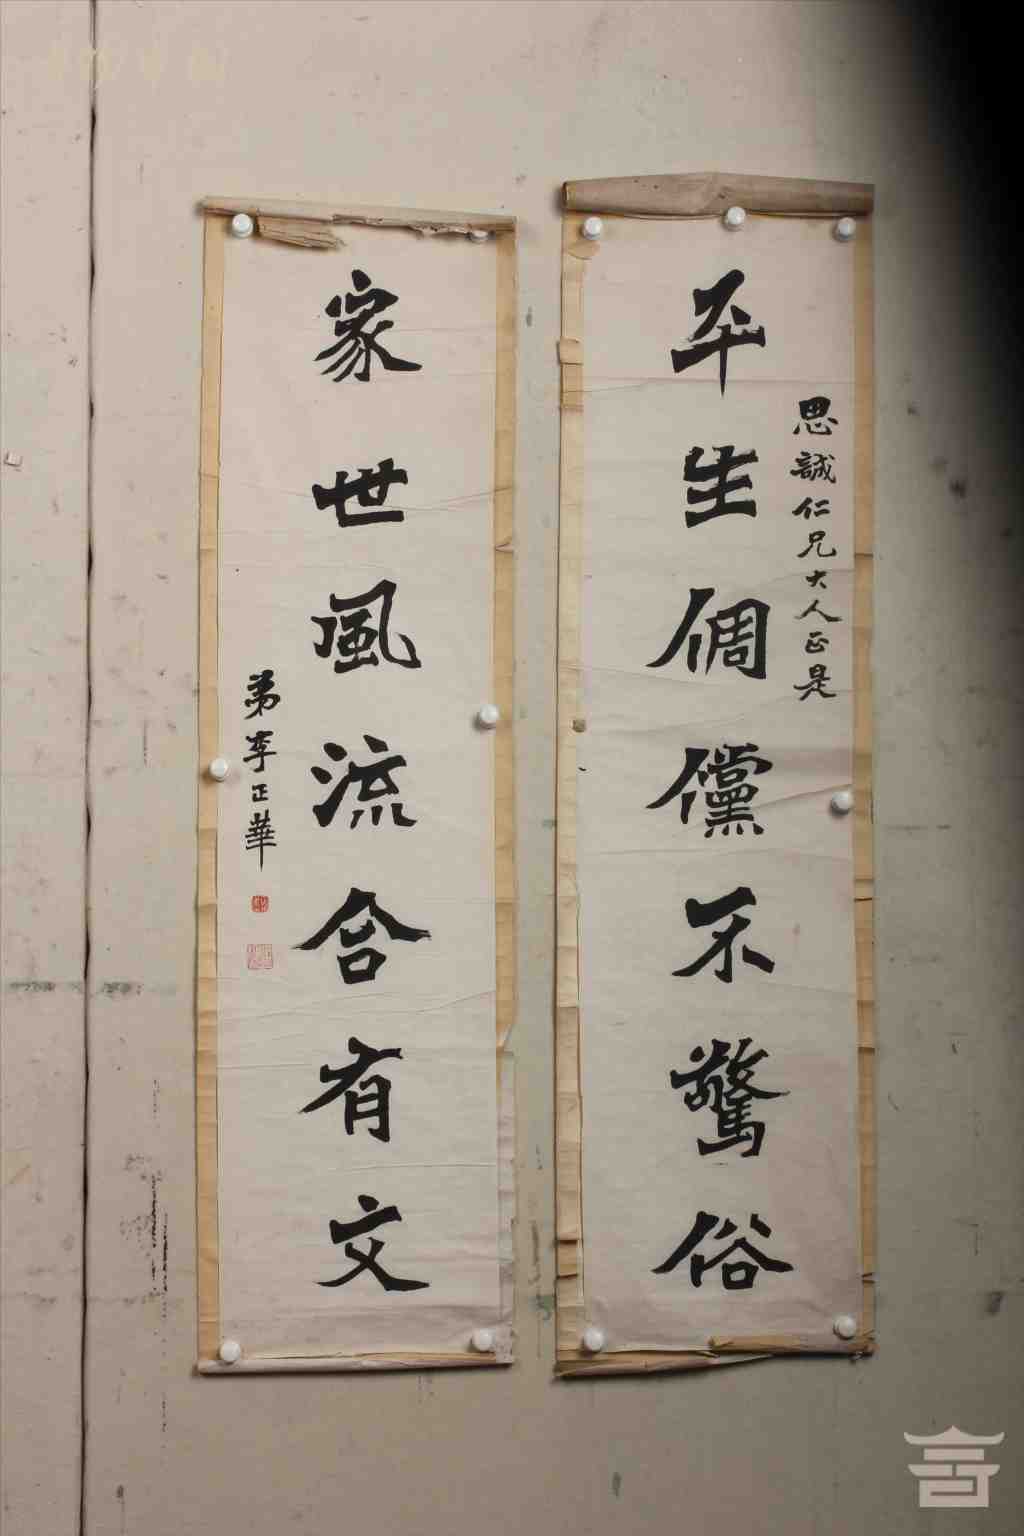 思誠仁兄大人正是
平生倜儻不驚俗
家世風流合有文
弟李正華